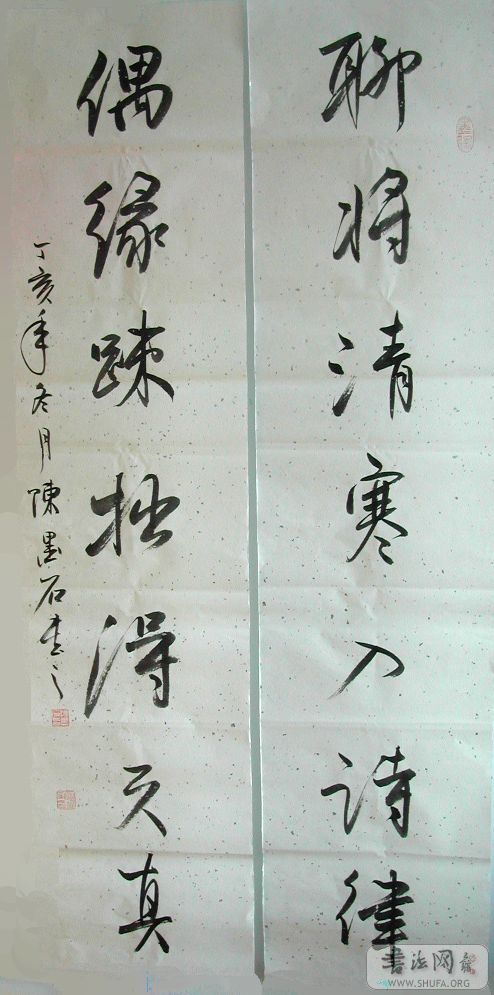 聊将清寒入诗律
偶缘疎拙得天真
丁亥年冬月陈墨石书之
書法网
WWW.SHUFA.ORG